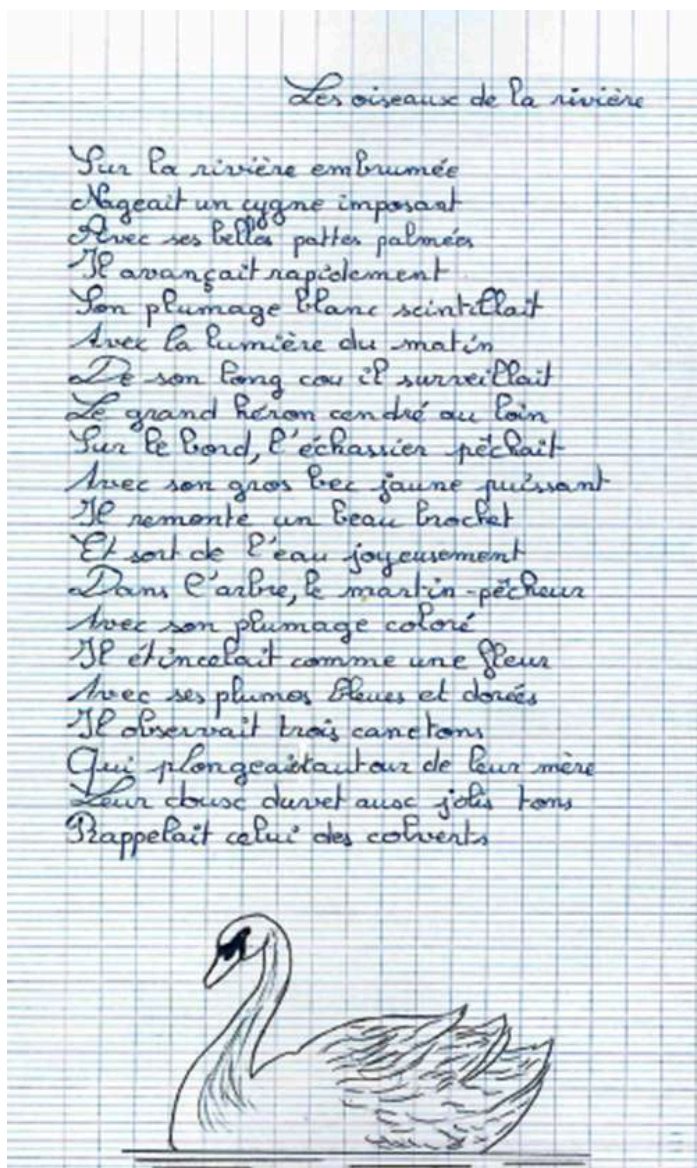 Les oiseaux de la rivière
Sur la rivière embrumée
Nageait un cygne imposant
Avec ses belles pattes palmées
Il avançait rapidement
Son plumage blanc scintillait
Avec la lumière du matin
De son long cou il surveillait
Le grand héron cendré au loin
Sur le bord, l'échassier pêchait
Avec son gros bec jaune puissant
Il remonte un beau brochet
Et sort de l'eau joyeusement
Dans l'arbre, le martin-pêcheur
Avec son plumage coloré
Il étincelait comme une fleur
Avec ses plumes bleues et dorées
Il observait trois canetons
Qui plongeait autour de leur mère
Leur doux duvet aux jolis tons
Rappelait celui des colverts